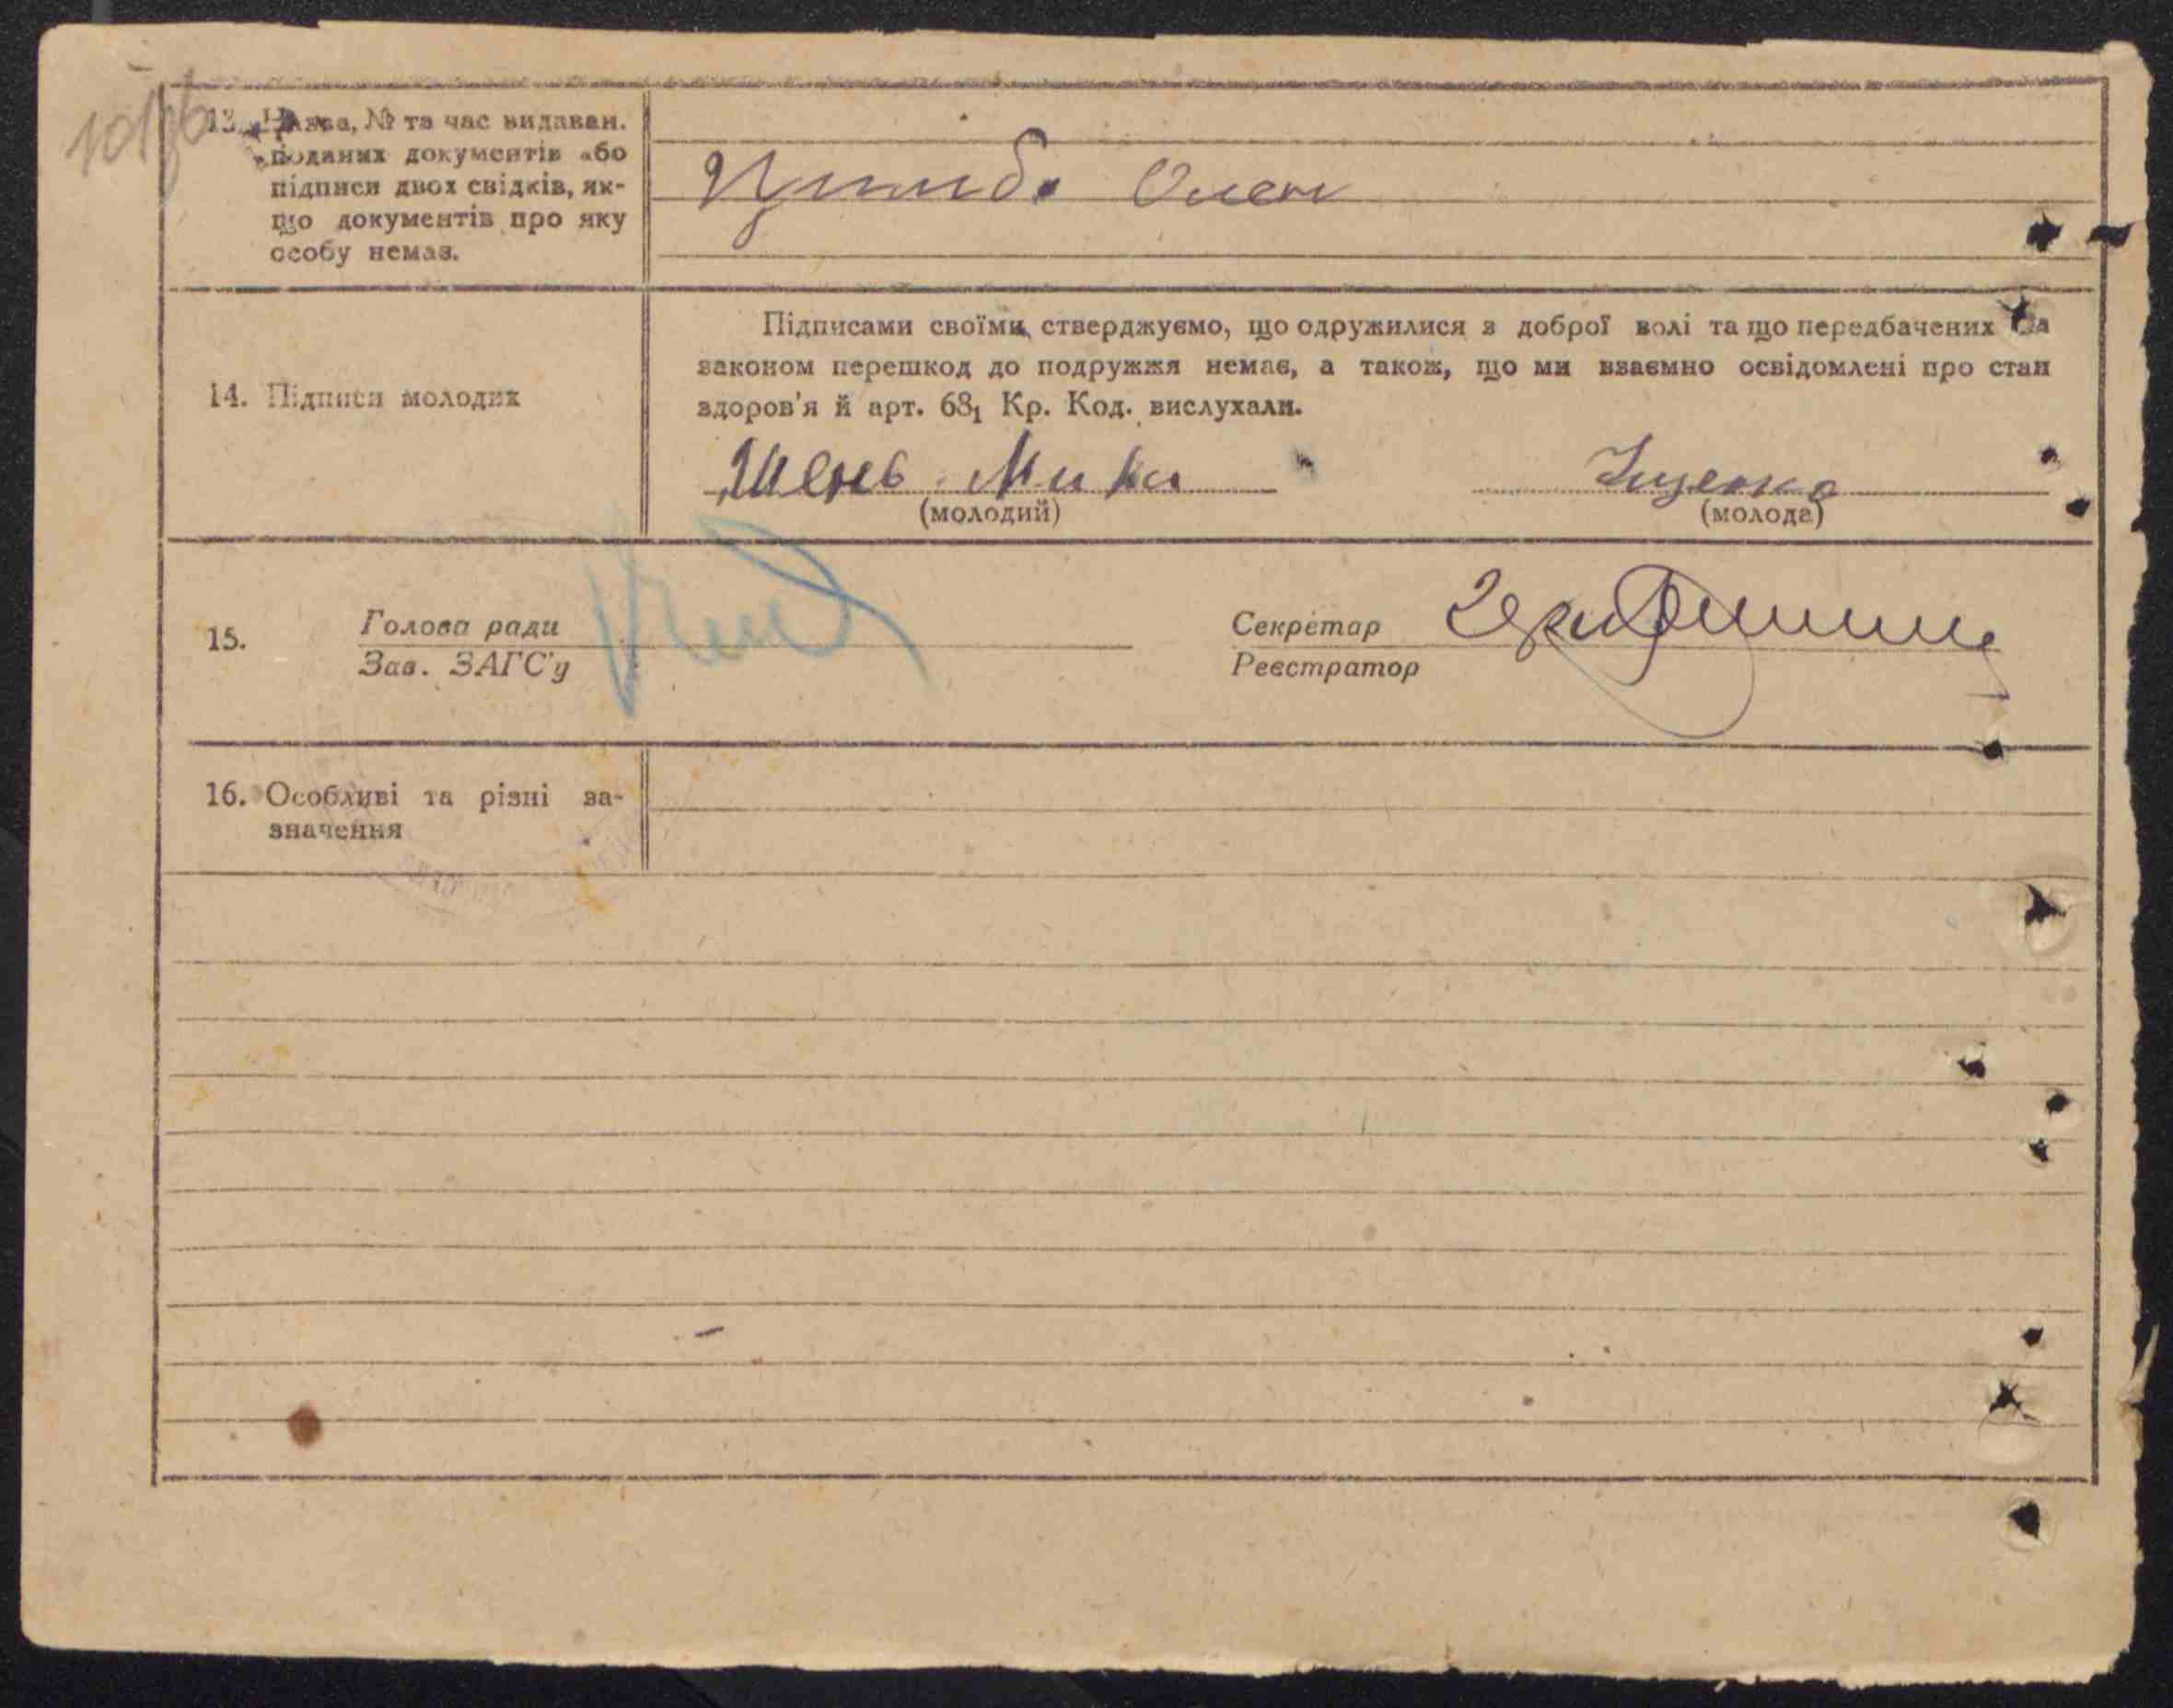 13. Назва, № та час видаван.
поданих документів або
підписи двох свідків, як-
що документів про яку
особу немає.
Олен
14. Підписи молодих
Підписами своїми стверджуємо, що одружилися з доброї волі та що передбачених за
законом перешкод до подружжя немає, а також, що ми взаємно освідомлені про стан
здоров'я й арт. 68₁ Кр. Код. вислухали.
Шень Мики
Іщенко
(молодий)
(молода)
15.
Голова ради
Зав. ЗАГС'у
Секретар
Реєстратор
16. Особливі та різні за-
значення